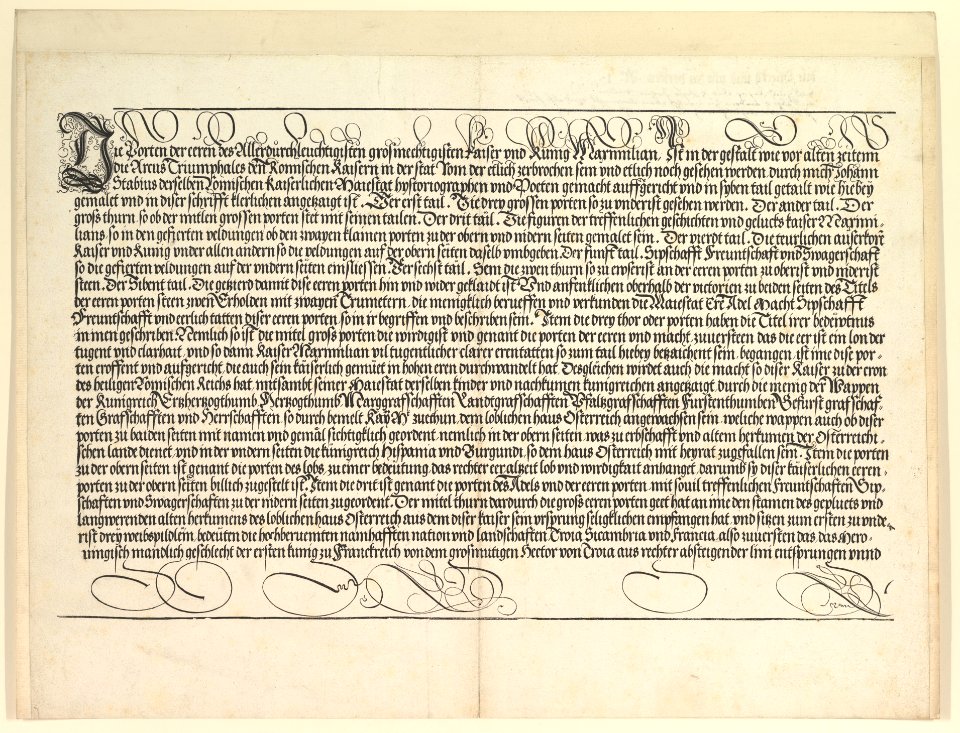 Die Porten der eeren des Allerdurchleuchtigisten grosmechtigisten kaiser vnd Kunig Maximilian. Ist in der gestalt wie vor alten zeitenn
die Arcus Triumphales den Romischen Kaisern in der stat Rom der etlich zerbrochen sein vnd etlich noch gesehen werden. durch mich Johann
Stabius derselben Romischen Kaiserlichen Maiestat hystoriographen vnd Poeten gemacht auffgericht vnd in syben tail getailt wie hie bey
gemalet vnd in diser schrifft klerlichen angetzaigt ist. Der erst tail. Die drey grossen porten so zu vnderist gesehen werden. Der ander tail. Der
groß thurn so ob der mitlen grossen porten stet mit seinen tailen. Der drit tail. Die figuren der treffenlichen geschichten vnd gelucks kaiser Maximi-
lians so in den gefierten veldungen ob den zwayen klainen porten zu der obern vnd nidern seiten gemalet sein. Der vierdt tail. Die teurlichen auserkorn
Kaiser vnd Kunig vnder allen andern so die veldungen auf der obern seiten daselb vmbgeben. Der funfft tail. Sipschafft Freuntschafft vnd Swagerschafft
so die gefierten veldungen auf der vndern seiten einsliessen. Der sechst tail. Sein die zwen thurn so zu ewserist an der eeren porten zu oberist vnd niderist
steen. Der Sibent tail. Die getzierd damit dise eeren porten hin vnd wider geklaidt ist. Vnd anfenklichen oberhalb der victorien zu beiden seiten des Titels
der eeren porten steen zwen Erholden mit zwayen Trumetern, die menigklich berueffen vnd verkunden die Maiestat Ere Adel Macht Sypschafft
Freuntschafft vnd eerlich tatten diser eeren porten so in ir begriffen vnd beschriben sein. Item die drey thor oder porten haben die Titel irer bedewtnus
in inen geschriben. Nemlich so ist die mitel groß porten die wirdigist vnd genant die porten der eeren vnd macht. zuuersteen das die eer ist ein lon der
tugent vnd clarhait, vnd so dann Kaiser Maximilian vil tugentlicher clarer eren tatten so zum tail hiebey betzaichent sein, begangen, ist ime dise por-
ten eroffent vnd aufgericht, die auch sein kaiserlich gemuet in hohen eren durchwandelt hat. Desgleichen wirdet auch die macht so diser Kaiser zu der cron
des heiligen Romischen Reichs hat, mitsambt seiner Maiestat derselben kinder vnd nachkumen kunigreichen angezaigt, durch die menig der Wappen
der Kunigreich Ertzhertzogthumb Hertzogthumb Marggrafschafften Landtgrafschafften Pfaltzgrafschafften Furstenthumben Gefurst grafschaf-
ten Grafschafften vnd Herrschafften so durch bemelt Kay Mt zuethun dem loblichen haus Osterreich angewachsen sein. weliche wappen auch ob diser
porten zu baiden seiten mit namen vnd gemäl sichtigklich geordent nemlich in der obern seiten, was zu erbschafft vnd altem herkumen der Osterreichi-
schen lande dienet, vnd in der vndern seiten die kunigreich Hispania vnd Burgundi so dem haus Osterreich mit heyrat zugefallen sein. Item die porten
zu der obern seiten ist genant die porten des lobs, zu einer bedeutung, das rechter eer alzeit lob vnd wirdigkait anhanget, darumb sy diser kaiserlichen eeren-
porten zu der obern seiten billich zugestelt ist. Item die drit ist genant die porten des Adels vnd der eeren porten mit souil treffenlichen Freuntschafften Sip-
schafften vnd Swagerschafften zu der nidern seiten zugeordent. Der mitel thurn dardurch die groß eeren porten geet hat an ime den stamen des geplucts vnd
langwerenden alten herkumens des loblichen haus Osterreich aus dem diser kaiser sein vrsprung seligklichen empfangen hat, vnd sitzen zum ersten zu vnde-
rist drey weibspildlein, bedeuten die hochberuemten namhafften nation vnd landschafften Troia Sicambria vnd Francia. also zuuersten das das Mero-
uingisch mandlich geschlecht der ersten kunig zu Franckreich von dem grosmutigen Hector von Troia aus rechter absteigender lini entsprungen vnnd